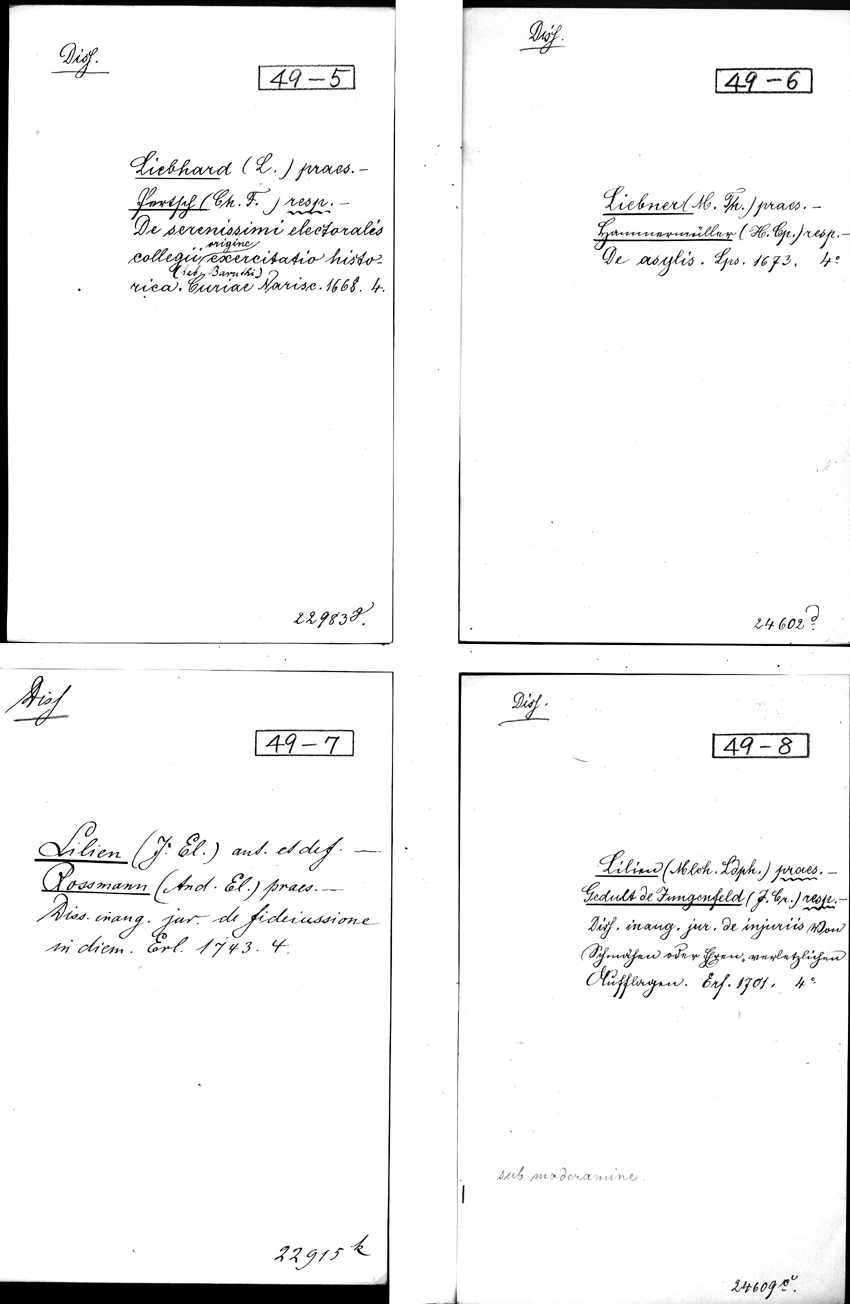 Diss.
49-5
Liebhard (L.) praes. -
Pertsch (Ch. F.) resp. -
De serenissimi electoralis
origine
collegii, exercitatio histo-
rica. Curiae Narisc. 1668. 4.
22983
Diss.
49-6
Liebner (M. Th.) praes. -
Hammermüller (H. Cp.) resp. -
De asylis. Lps. 1673. 4°
24602 d.
Diss
49-7
Lilien (J. El.) aut. et def. —
Rossmann (And. El.) praes. —
Diss. inaug. jur. de fideiussione
in diem. Erl. 1743. 4.
22915 k
Diss.
49-8
Lilien (Mlch. Ldph.) praes. -
Gedult de Jungenfeld (J. Cr.) resp. -
Diss. inaug. jur. de injuriis Von
Schmähen oder Ehren-verletzlichen
Aufflagen. Erf. 1701. 4°
sub moderamine.
24609